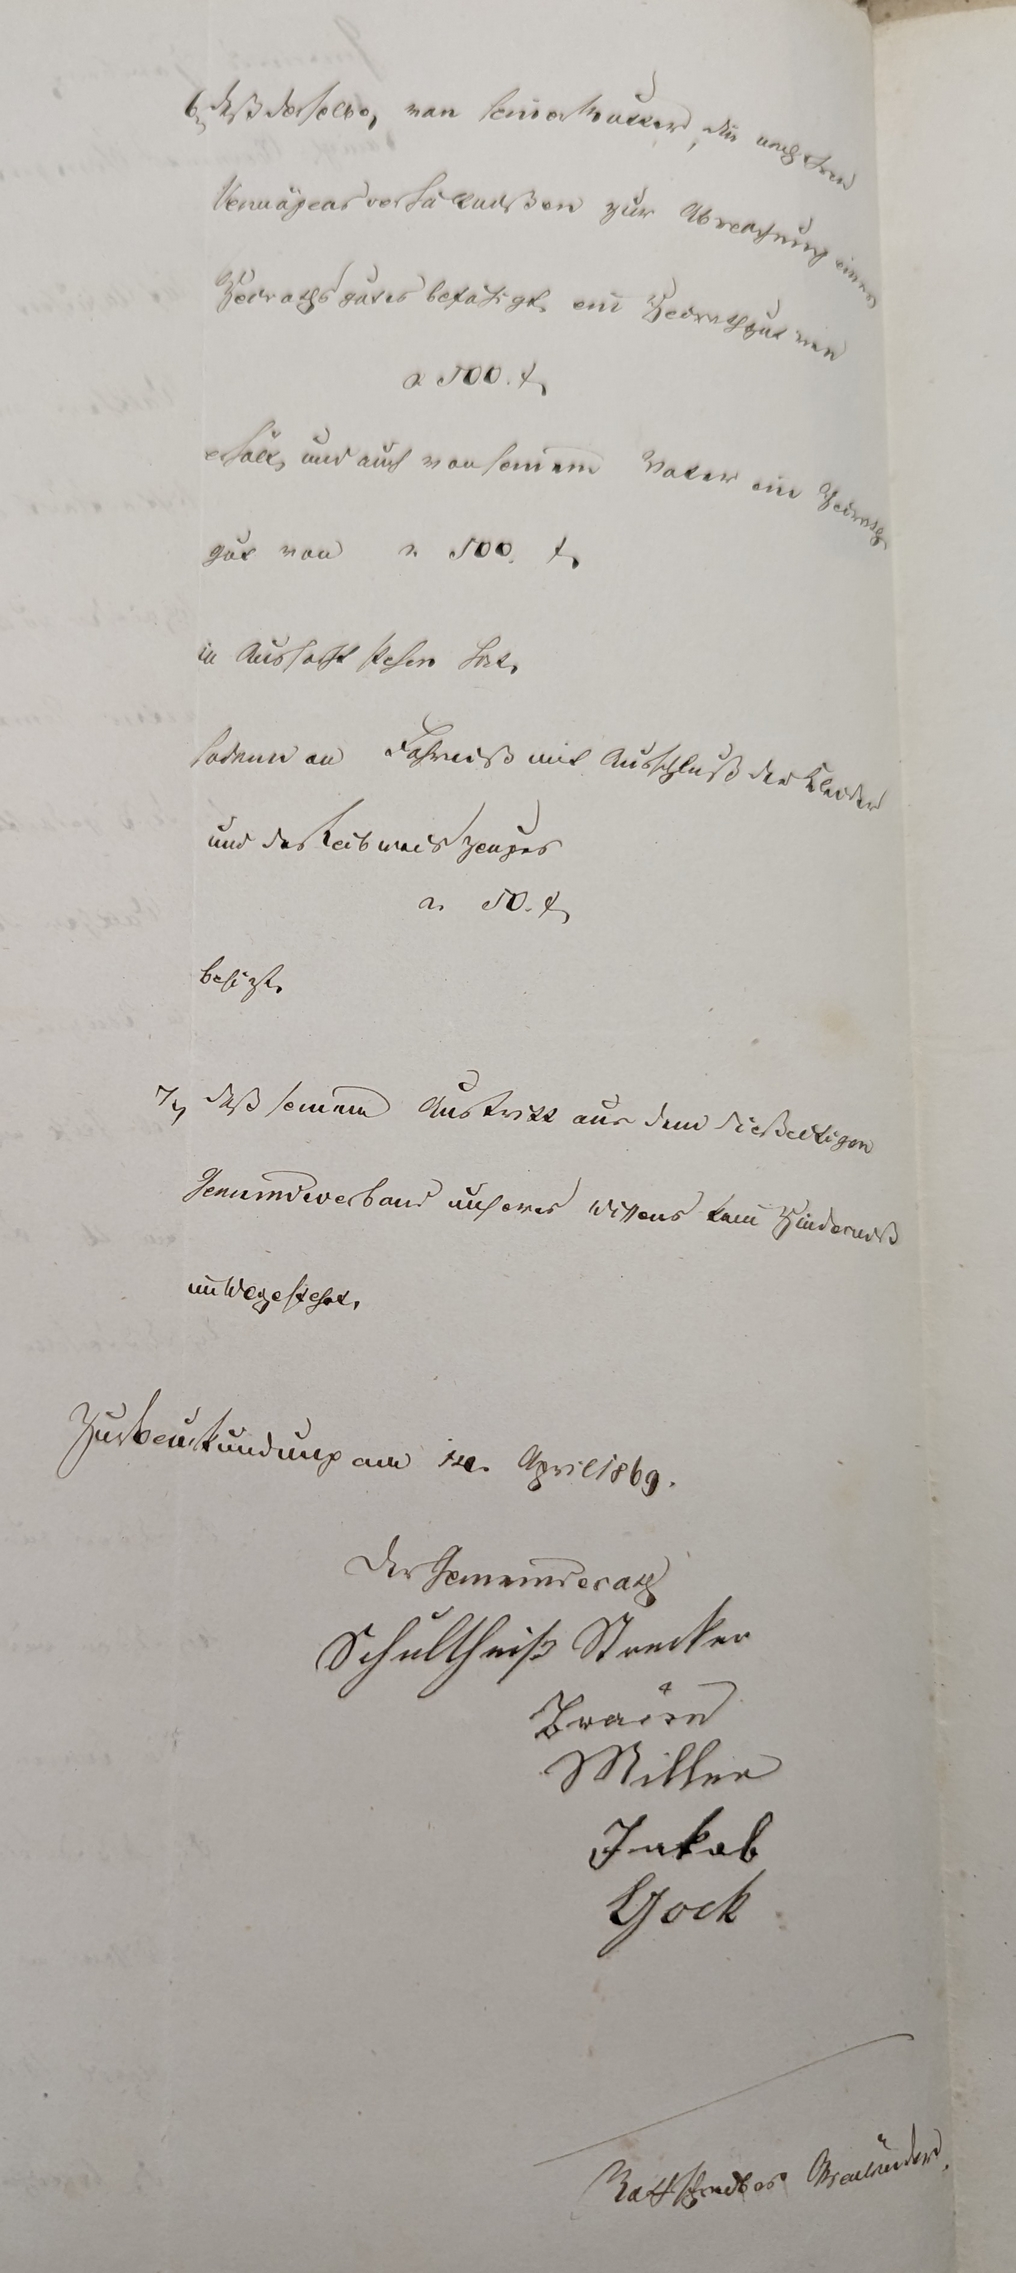 6, daß derselbe, von seiner Mutter, die nach ihren
Vermögensverhältnißen zur Abreichung eines
Heirathsgutes befähigt, ein Heirathgut von
a 500. f.
erhält, und auch von seinem Vater ein Heirath
gut von a 500. f.
in Aussicht stehen hat,
sodann an Fahrniß mit Ausschluß der Kleider
und des Leibweiszeuges
a. 50. f.
besizt.
7, daß seinem Austritt aus dem dießeitigen
Gemeindeverband unseres Wissens kein Hinderniß
im Wege stehet.
Zur Beurkundung am April 1869.
Der Gemeinderath
Schultheiß Strecker
Miller
Jakob
Hock
Rathschreiber